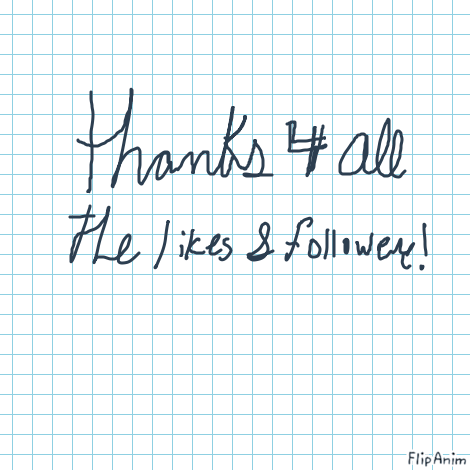 thanks 4 all
the likes & follower!
FlipAnim